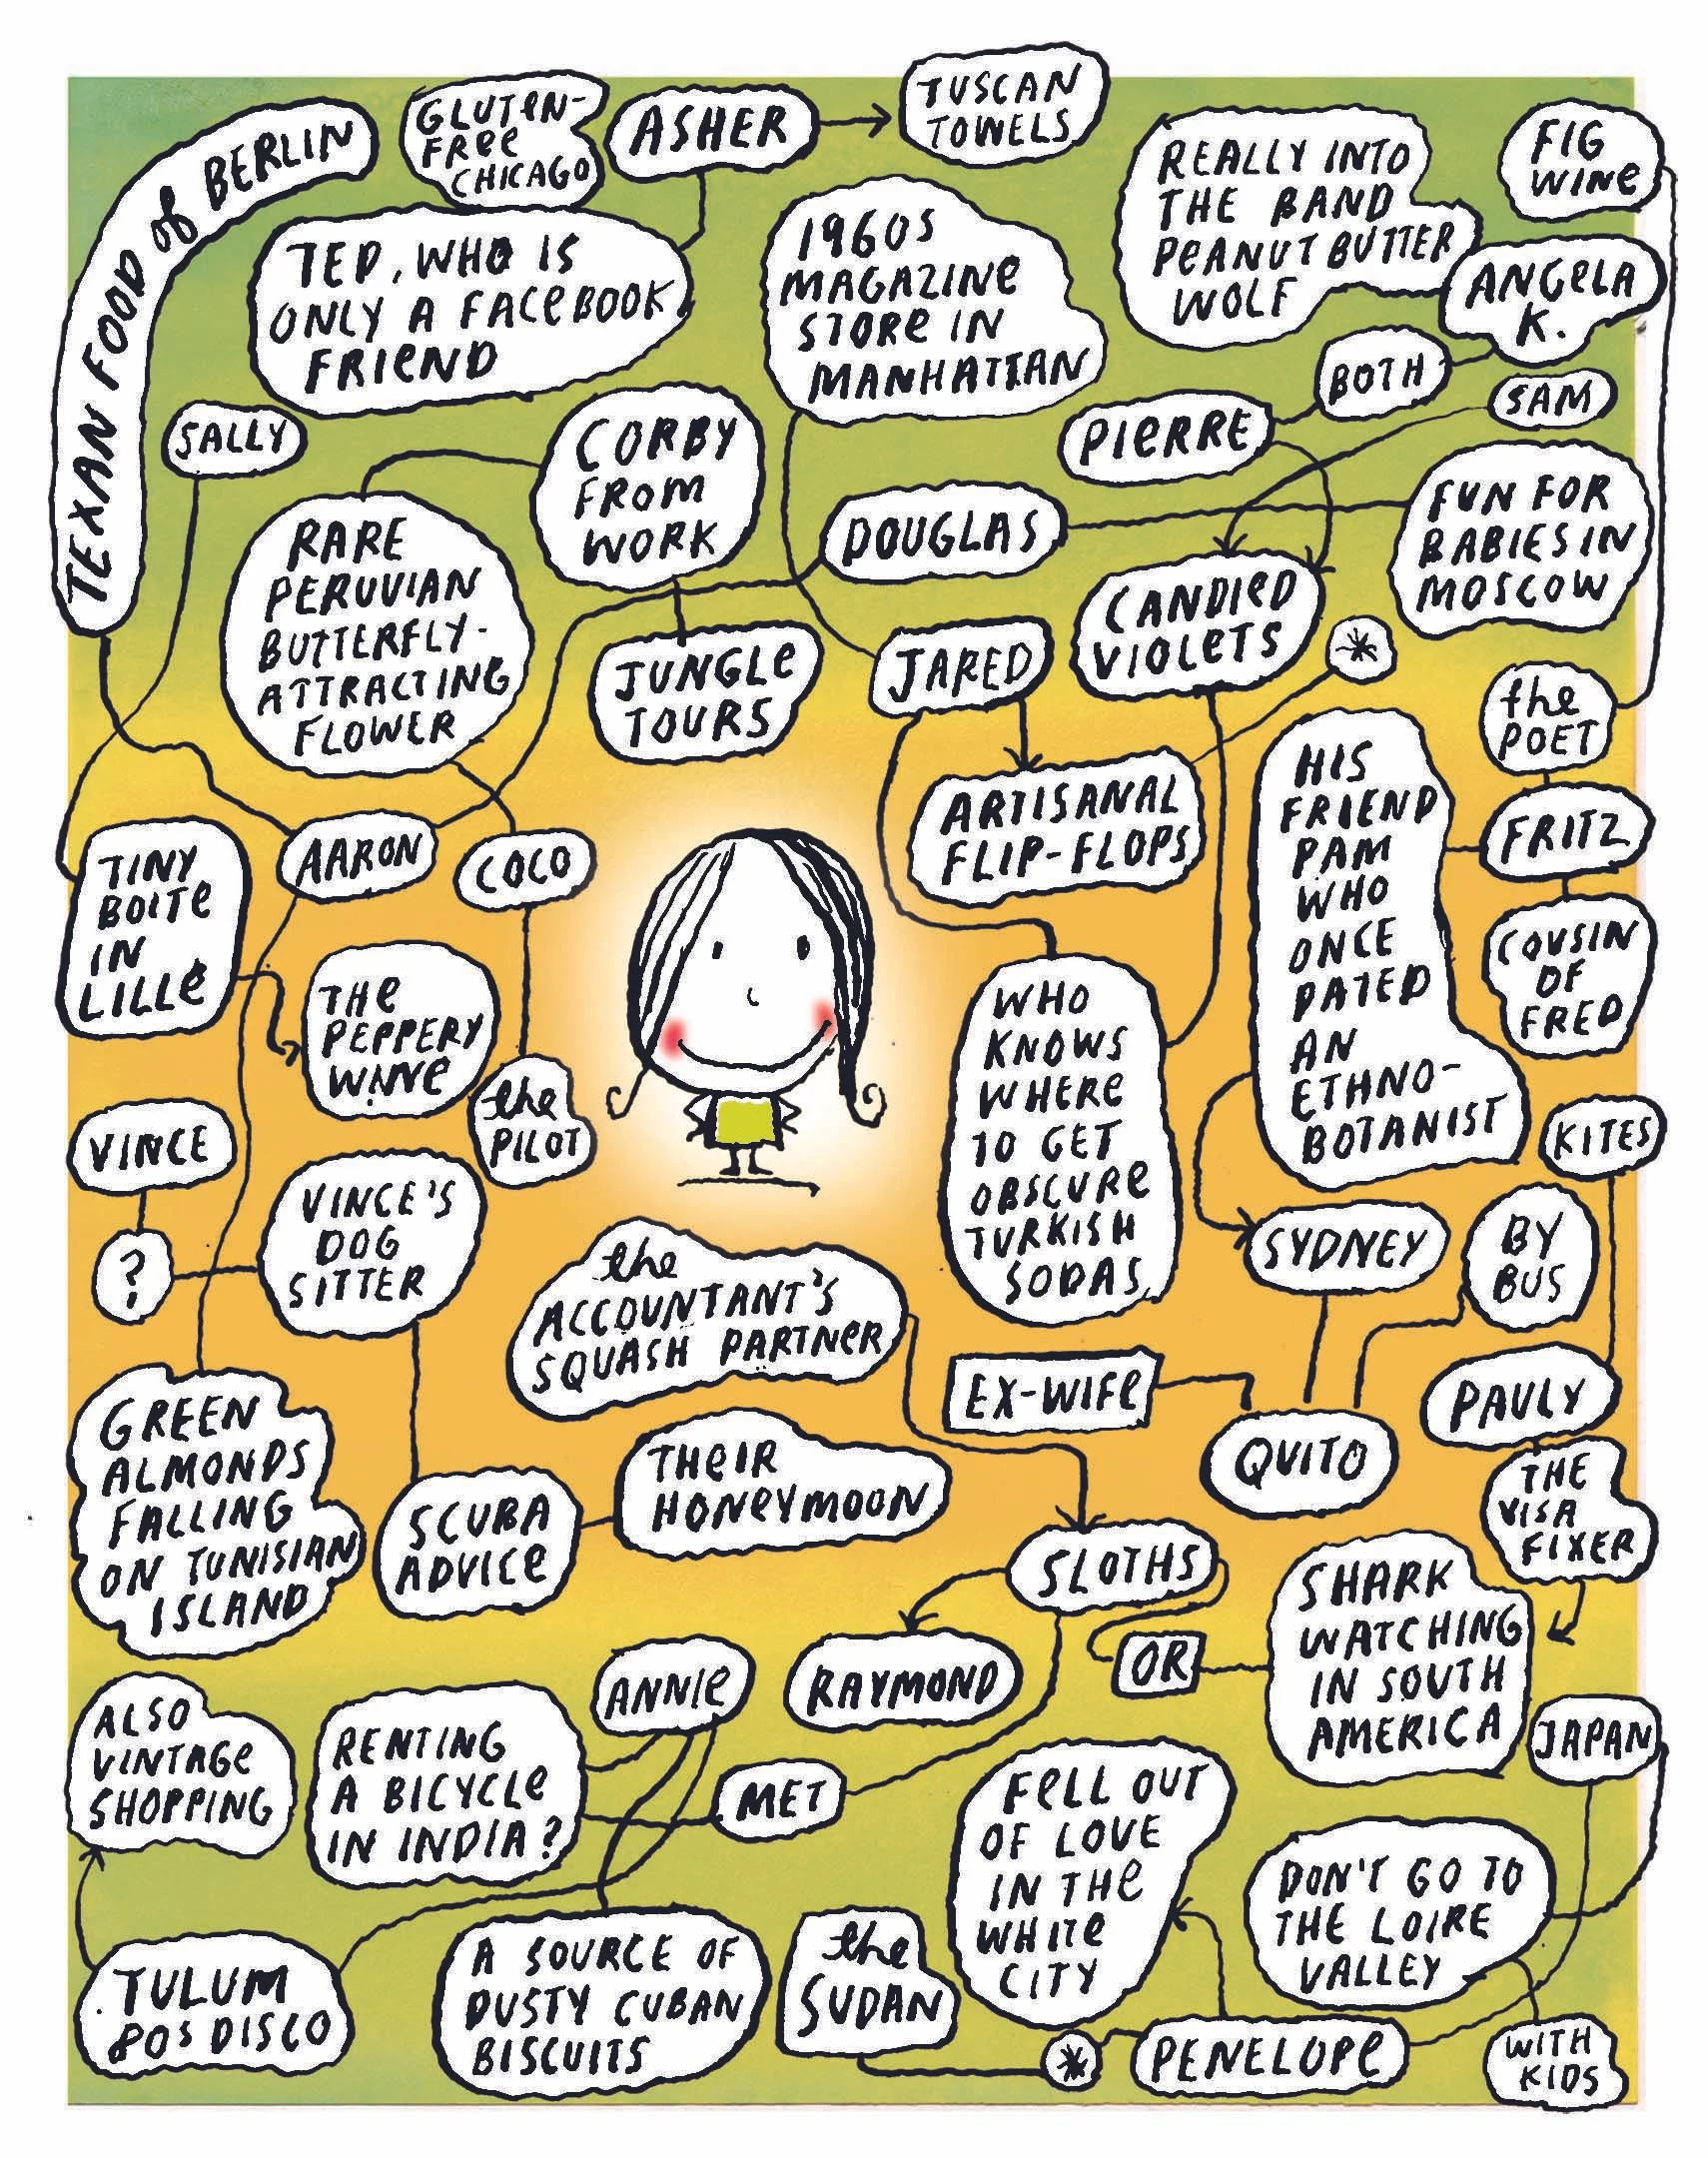 TEXAN FOOD of BERLIN
GLUTEN-
FREE
CHICAGO
ASHER
TUSCAN
TOWELS
TED, WHO IS
ONLY A FACEBOOK
FRIEND
1960S
MAGAZINE
STORE IN
MANHATTAN
REALLY INTO
THE BAND
PEANUT BUTTER
WOLF
FIG
WINE
ANGELA
K.
BOTH
SAM
PIERRE
SALLY
CORBY
FROM
WORK
RARE
PERUVIAN
BUTTERFLY-
ATTRACTING
FLOWER
DOUGLAS
FUN FOR
BABIES IN
MOSCOW
CANDIED
VIOLETS
*
JUNGLE
TOURS
JARED
the
POET
ARTISANAL
FLIP-FLOPS
HIS
FRIEND
PAM
WHO
ONCE
DATED
AN
ETHNO-
BOTANIST
FRITZ
COUSIN
OF
FRED
TINY
BOITE
IN
LILLE
AARON
COCO
THE
PEPPERY
WINE
the
PILOT
WHO
KNOWS
WHERE
TO GET
OBSCURE
TURKISH
SODAS
KITES
VINCE
?
VINCE'S
DOG
SITTER
the
ACCOUNTANT'S
SQUASH PARTNER
SYDNEY
BY
BUS
EX-WIFE
QUITO
PAULY
THE
VISA
FIXER
GREEN
ALMONDS
FALLING
ON TUNISIAN
ISLAND
SCUBA
ADVICE
THEIR
HONEYMOON
SLOTHS
SHARK
WATCHING
IN SOUTH
AMERICA
OR
RAYMOND
ANNIE
ALSO
VINTAGE
SHOPPING
RENTING
A BICYCLE
IN INDIA?
MET
JAPAN
FELL OUT
OF LOVE
IN THE
WHITE
CITY
DON'T GO TO
THE LOIRE
VALLEY
TULUM
80S DISCO
A SOURCE OF
DUSTY CUBAN
BISCUITS
the
SUDAN
*
PENELOPE
WITH
KIDS